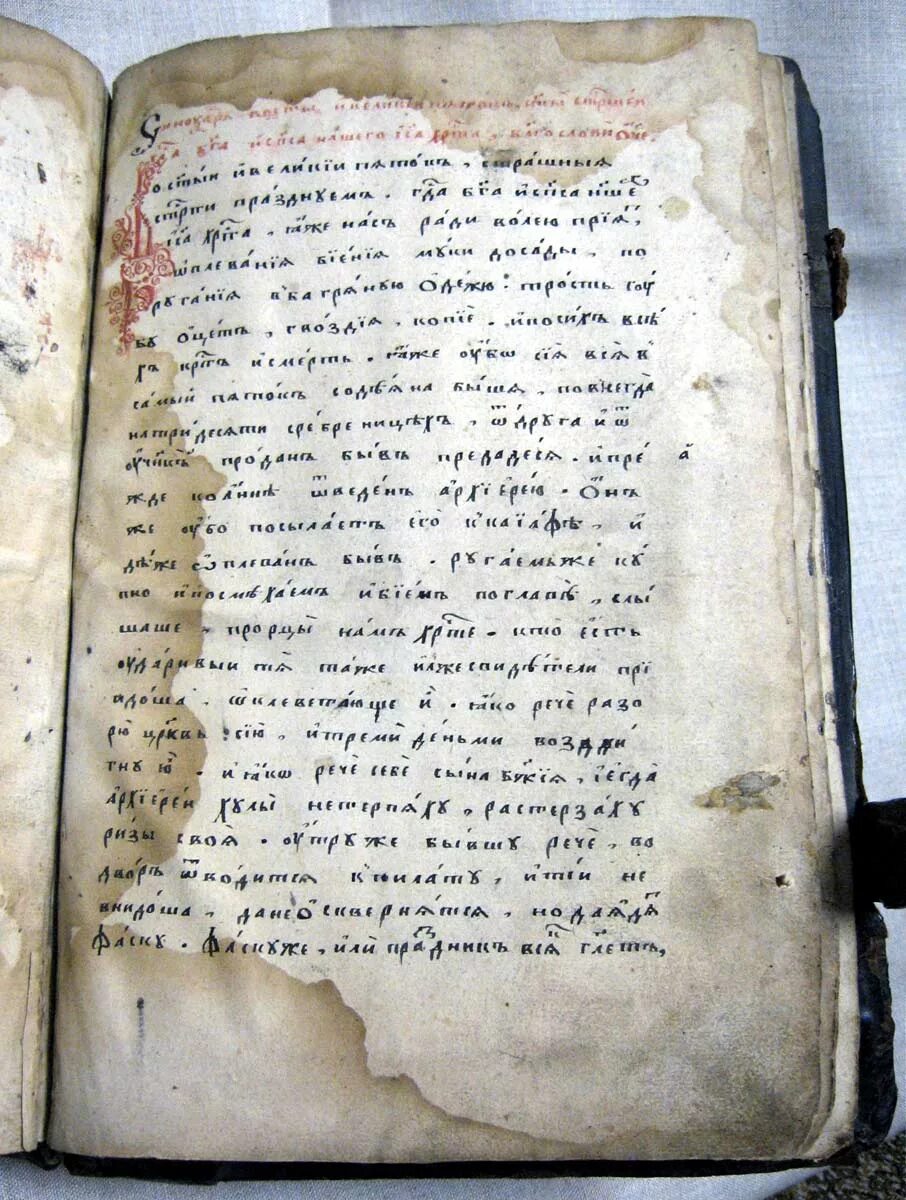 Сѷнаѯарь въ ст҃ы и великіи пятокъ, ст҃ыѧ стр҃ти
га б҃га и сп҃са нашего іс҃а хр҃та, бл҃гослови ѻч҃е.
Во ст҃ыи и вели́кїи пято́къ, стра́шныѧ
стрⷭ҇ти пра́зднуемъ. гдⷭ҇а бг҃а и҆ сп҃са на́шегѡ
і҆с҃а хрⷭ҇та, ꙗ҆́же на́съ ра́ди во́лею прїѧ́тъ,
ѡ҆плева́нїѧ бїе́нїѧ му́ки доса́ды, по
руга́нїѧ в багрѧ́ную ѻ҆де́жю. тро́сть гу́
бу о҆́цетъ, гво́здїѧ, ко́пїе. и҆ посихъ всѣ́
хъ крⷭ҇тъ и҆ сме́рть. ꙗ҆́же ᲂу҆́бѡ сїѧ̀ всѧ̀ в
са́мый пѧто́къ содѣ́ѧна бы́шѧ, повнегда̀
на три́десѧти сре́бреницѣхъ, ѿ дру́га и҆ ѿ
ᲂу҆ченикà про́данъ бы́въ предаде́сѧ. и҆ пре́
жде ко а҆́ннѣ ѿведе́нъ а҆рхїере́ю. Ѻ҆́нъ
же ᲂу҆́бо посыла́етъ его̀ к каїа́фѣ, и҆
дѣ́же ѡ҆плева́нъ бы́въ. руга́емь же ку́
пно и҆ посмѣха́емъ и҆ бїе́мъ по главѣ̀, слы́
шаше, прорцы̀ на́мъ хрⷭ҇те. кто̀ е҆́сть
ᲂу҆да́ривыи тѧ̀ та́же и҆ лжесвидѣ́тели прї
идо́ша, ѡ҆клевета́юще и҆̀. ꙗ҆́ко речѐ разо
рю̀ цр҃ковь сїю̀, и҆ тремѝ де́ньми воздви́
гну ю҆̀. и҆ ꙗ҆́кѡ речѐ себѐ сы́на бж҃їѧ, і҆ е҆гда̀
а҆рхїере́и хулы̀ нетерпѧ́ху, растерза́ху
ри́зы своѧ̀. ᲂу҆́тру же бы́вшу речѐ, во
дво́ръ ѿво́дитсѧ к пила́ту, и҆ ті́и не
внидо́ша, да не ѡ҆сквернѧ́тсѧ, но да ꙗ҆дѧ́тъ
фа́ску. Фа́ску же, и҆лѝ пра́здникъ всѧ́къ гл҃етъ,